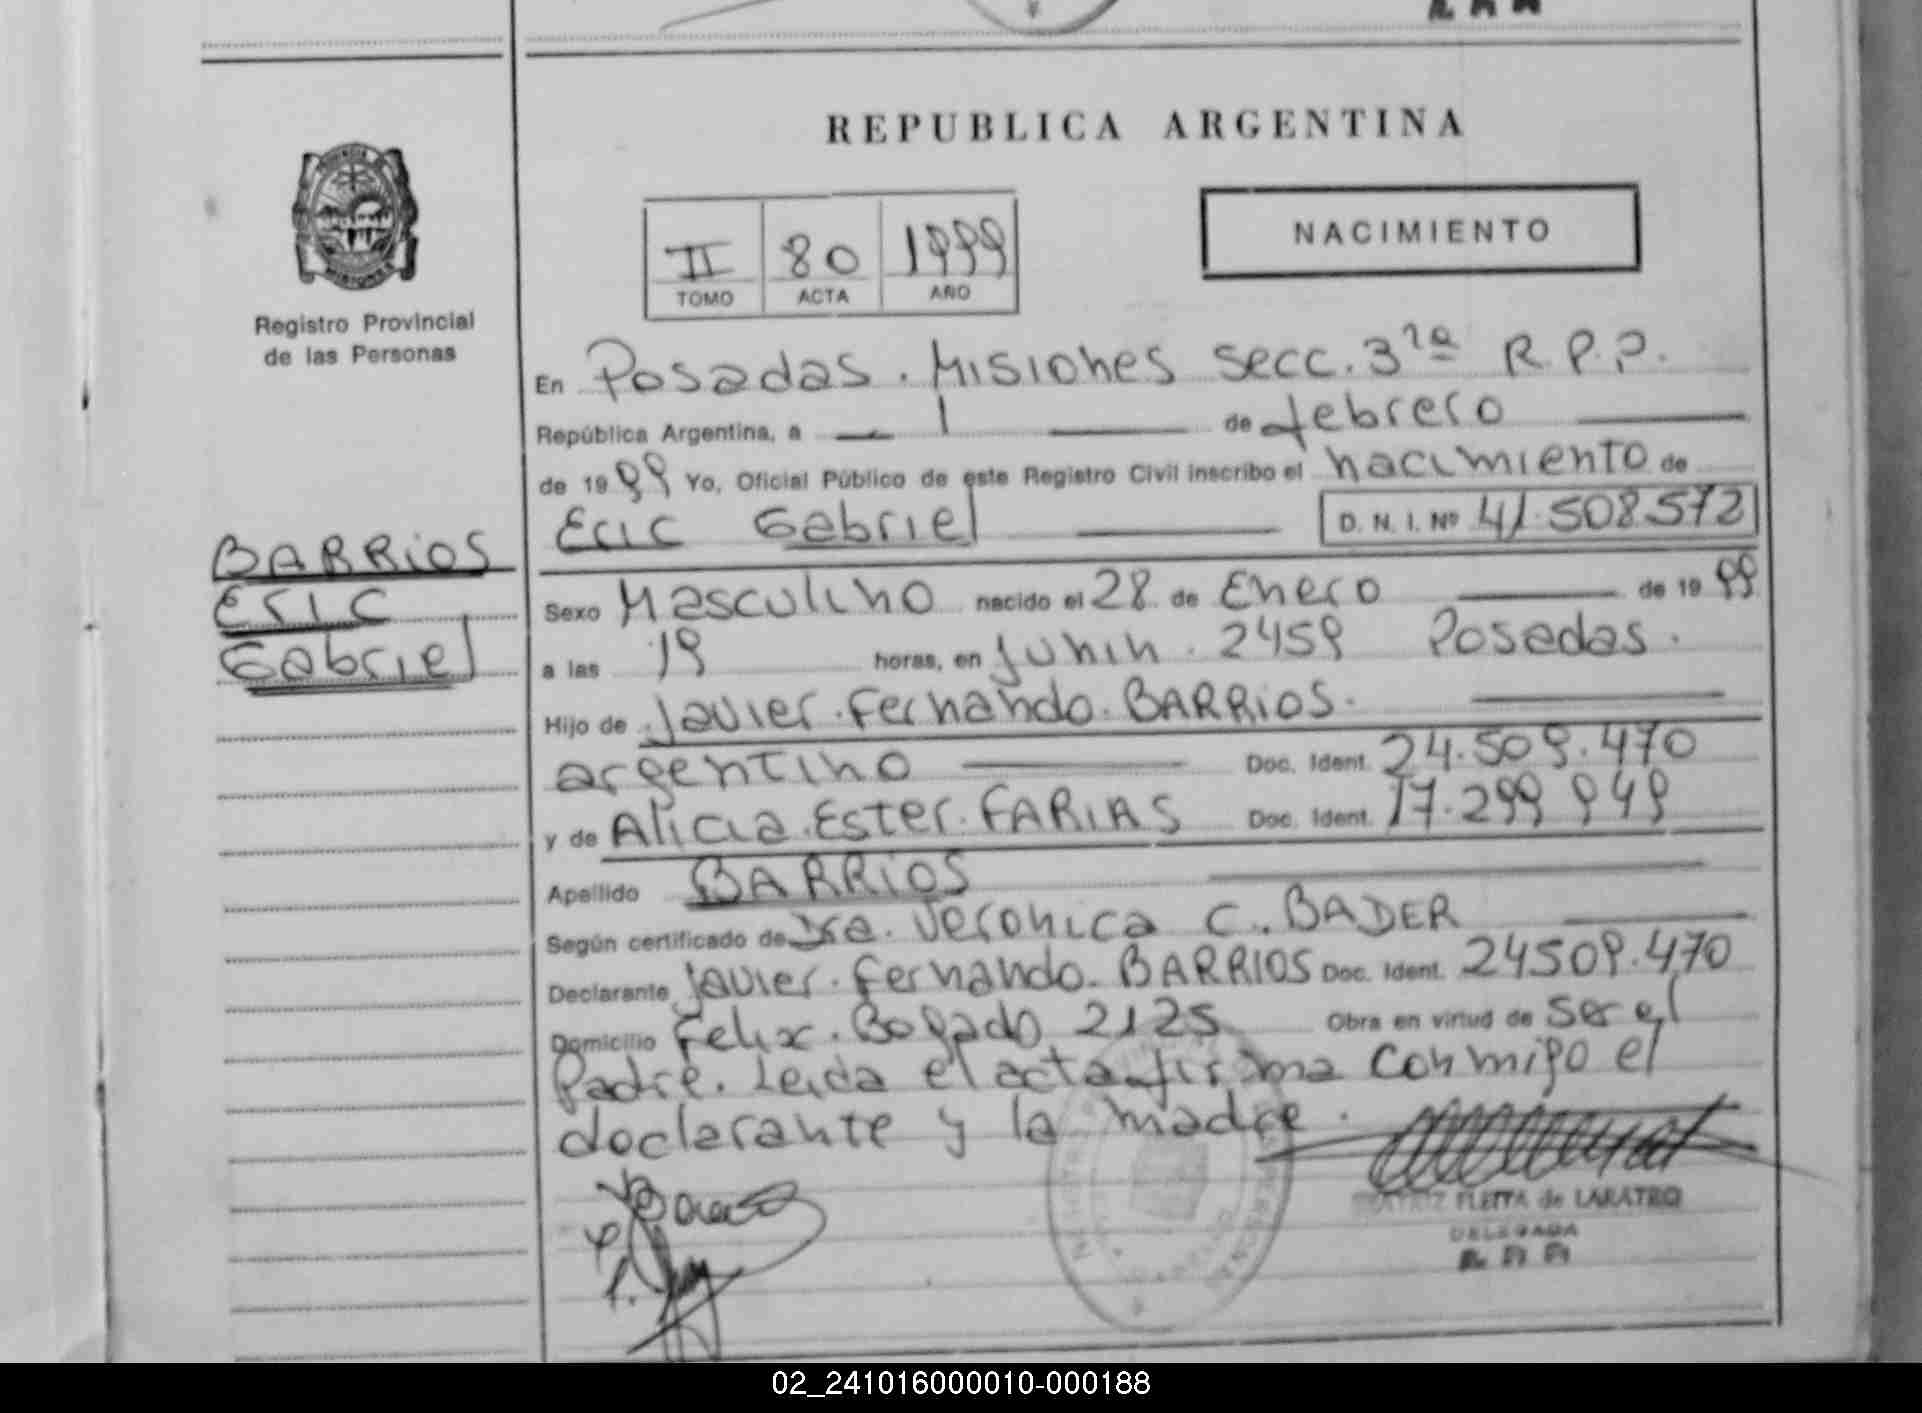 REPUBLICA ARGENTINA
NACIMIENTO
II 80 1999
TOMO ACTA AÑO
Registro Provincial
de las Personas
En Posadas. Misiones secc. 3ra R.P.P.
República Argentina, a 1 de febrero
de 1999 Yo, Oficial Público de este Registro Civil inscribo el nacimiento de
Eric Gabriel D. N. I. Nº 41.508.572
BARRIOS
Eric
Gabriel
Sexo Masculino nacido el 28 de Enero de 1999
a las 19 horas, en Junin. 2459 Posadas.
Hijo de Javier. Fernando. BARRIOS.
argentino Doc. Ident. 24.509.470
y de Alicia. Ester. FARIAS Doc. Ident. 17.299 949
Apellido BARRIOS
Según certificado de Dra. Veronica C. BADER
Declarante Javier. Fernando. BARRIOS Doc. Ident. 24509.470
Domicilio Felix. Bogado 2125 Obra en virtud de ser el
Padre. Leida el acta firma conmigo el
declarante y la madre.
FLEITA de LABATRO
DELEGADA
02_241016000010-000188